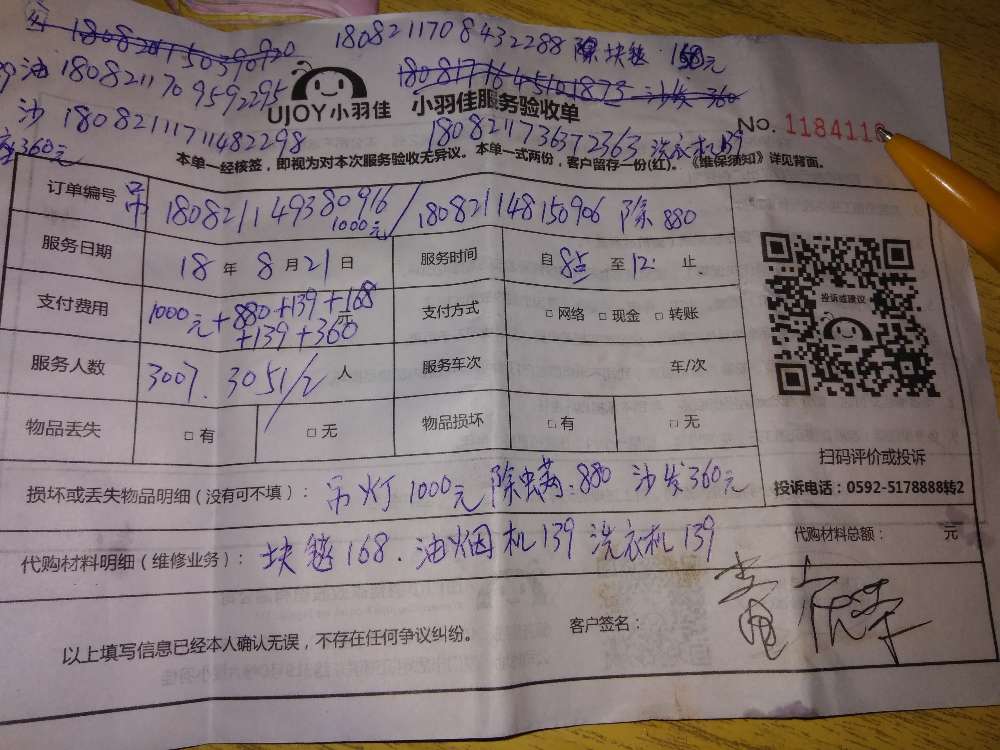 180821170 8432288 除块毯 168元
油 180821170 9592295
1808171645101873 沙发360
UJOY小羽佳 小羽佳服务验收单
No. 1184118
沙 18082111711482298
1808211736372363 洗衣机139
座360元
本单一经核签，即视为对本次服务验收无异议。本单一式两份，客户留存一份(红)。《维保须知》详见背面。
订单编号 吊 180821149380916 / 180821148150906 除 880
1000元
服务日期 18 年 8 月 21 日 服务时间 自 8点 至 12. 止
支付费用 1000元+880+139+168 元 支付方式 □ 网络 □ 现金 □ 转账
+139+360
投诉或建议
服务人数 3007. 3051/2 人 服务车次 车/次
物品丢失 □ 有 □ 无 物品损坏 □ 有 □ 无
扫码评价或投诉
投诉电话：0592-5178888转2
损坏或丢失物品明细（没有可不填）： 吊灯1000元 除螨:880 沙发360元
代购材料明细（维修业务）： 块毯168. 油烟机139 洗衣机139 代购材料总额： 元
以上填写信息已经本人确认无误，不存在任何争议纠纷。 客户签名：